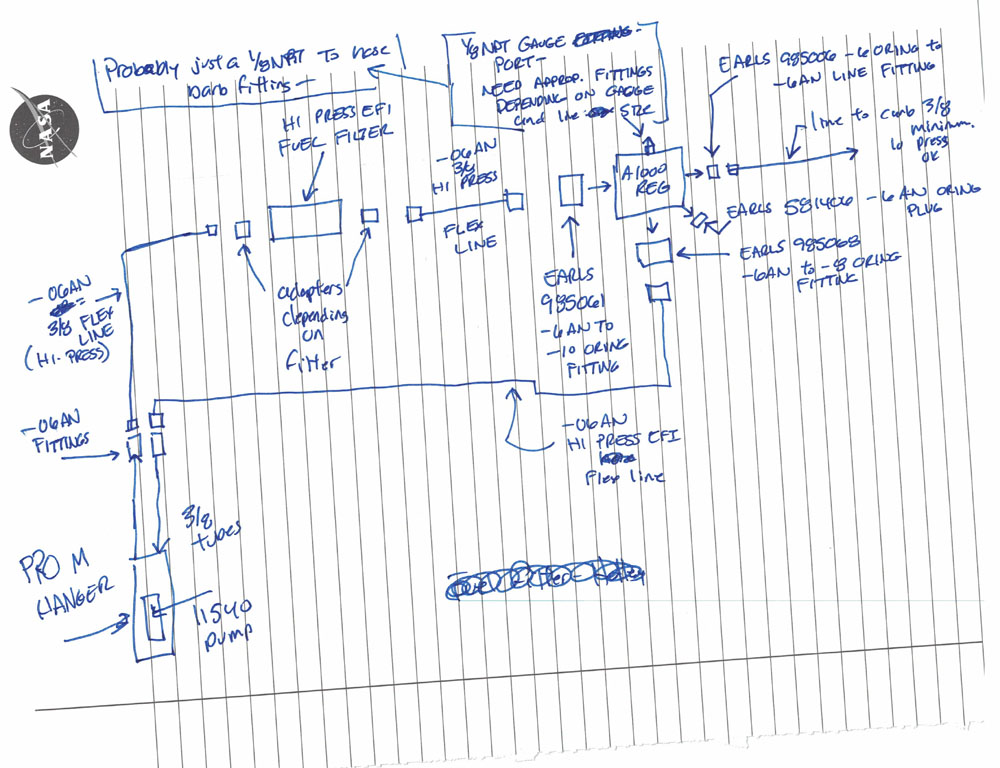 Probably just a 1/8 NPT To hose
barb fitting —
1/8 NPT GAUGE
PORT —
NEED APPROP. FITTINGS
DEPENDING ON GAUGE
and line SIZE
EARLS 985006 -6 ORING to
-6AN LINE FITTING
NASA
HI PRESS EFI
FUEL FILTER
-06AN
3/8
HI PRESS
FLEX
LINE
A1000
REG
line to carb 3/8
minimum.
lo press
OK
EARLS 581406 - 6 AN ORING
PLUG
EARLS 985068
-6AN to -8 ORING
FITTING
-06AN
3/8 FLEX
LINE
(HI-PRESS)
adapters
depending
on
filter
EARLS
985061
-6 AN TO
-10 ORING
FITTING
-06AN
FITTINGS
-06AN
HI PRESS EFI
Flex line
3/8
tubes
PRO M
HANGER
11540
pump